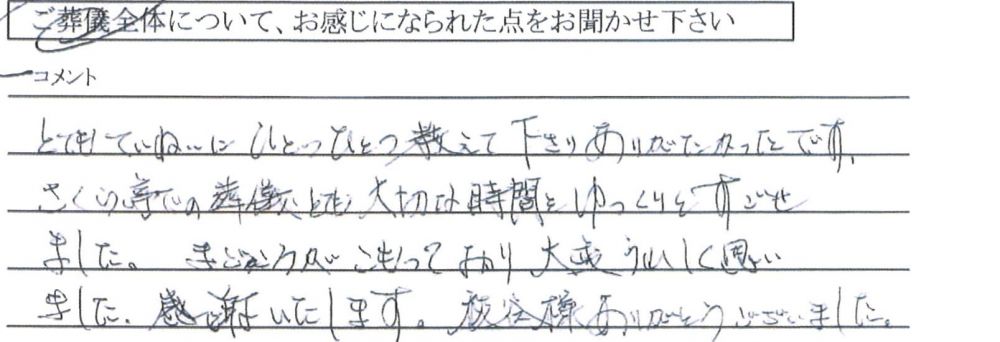 ご葬儀全体について、お感じになられた点をお聞かせ下さい
コメント
とてもていねいにひとつひとつ教えて下さりありがたかったです。
さくら亭での葬儀とても大切な時間をゆっくりとすごせ
ました。まごころがこもっており大変うれしく思い
ました。感謝いたします。板谷様ありがとうございました。